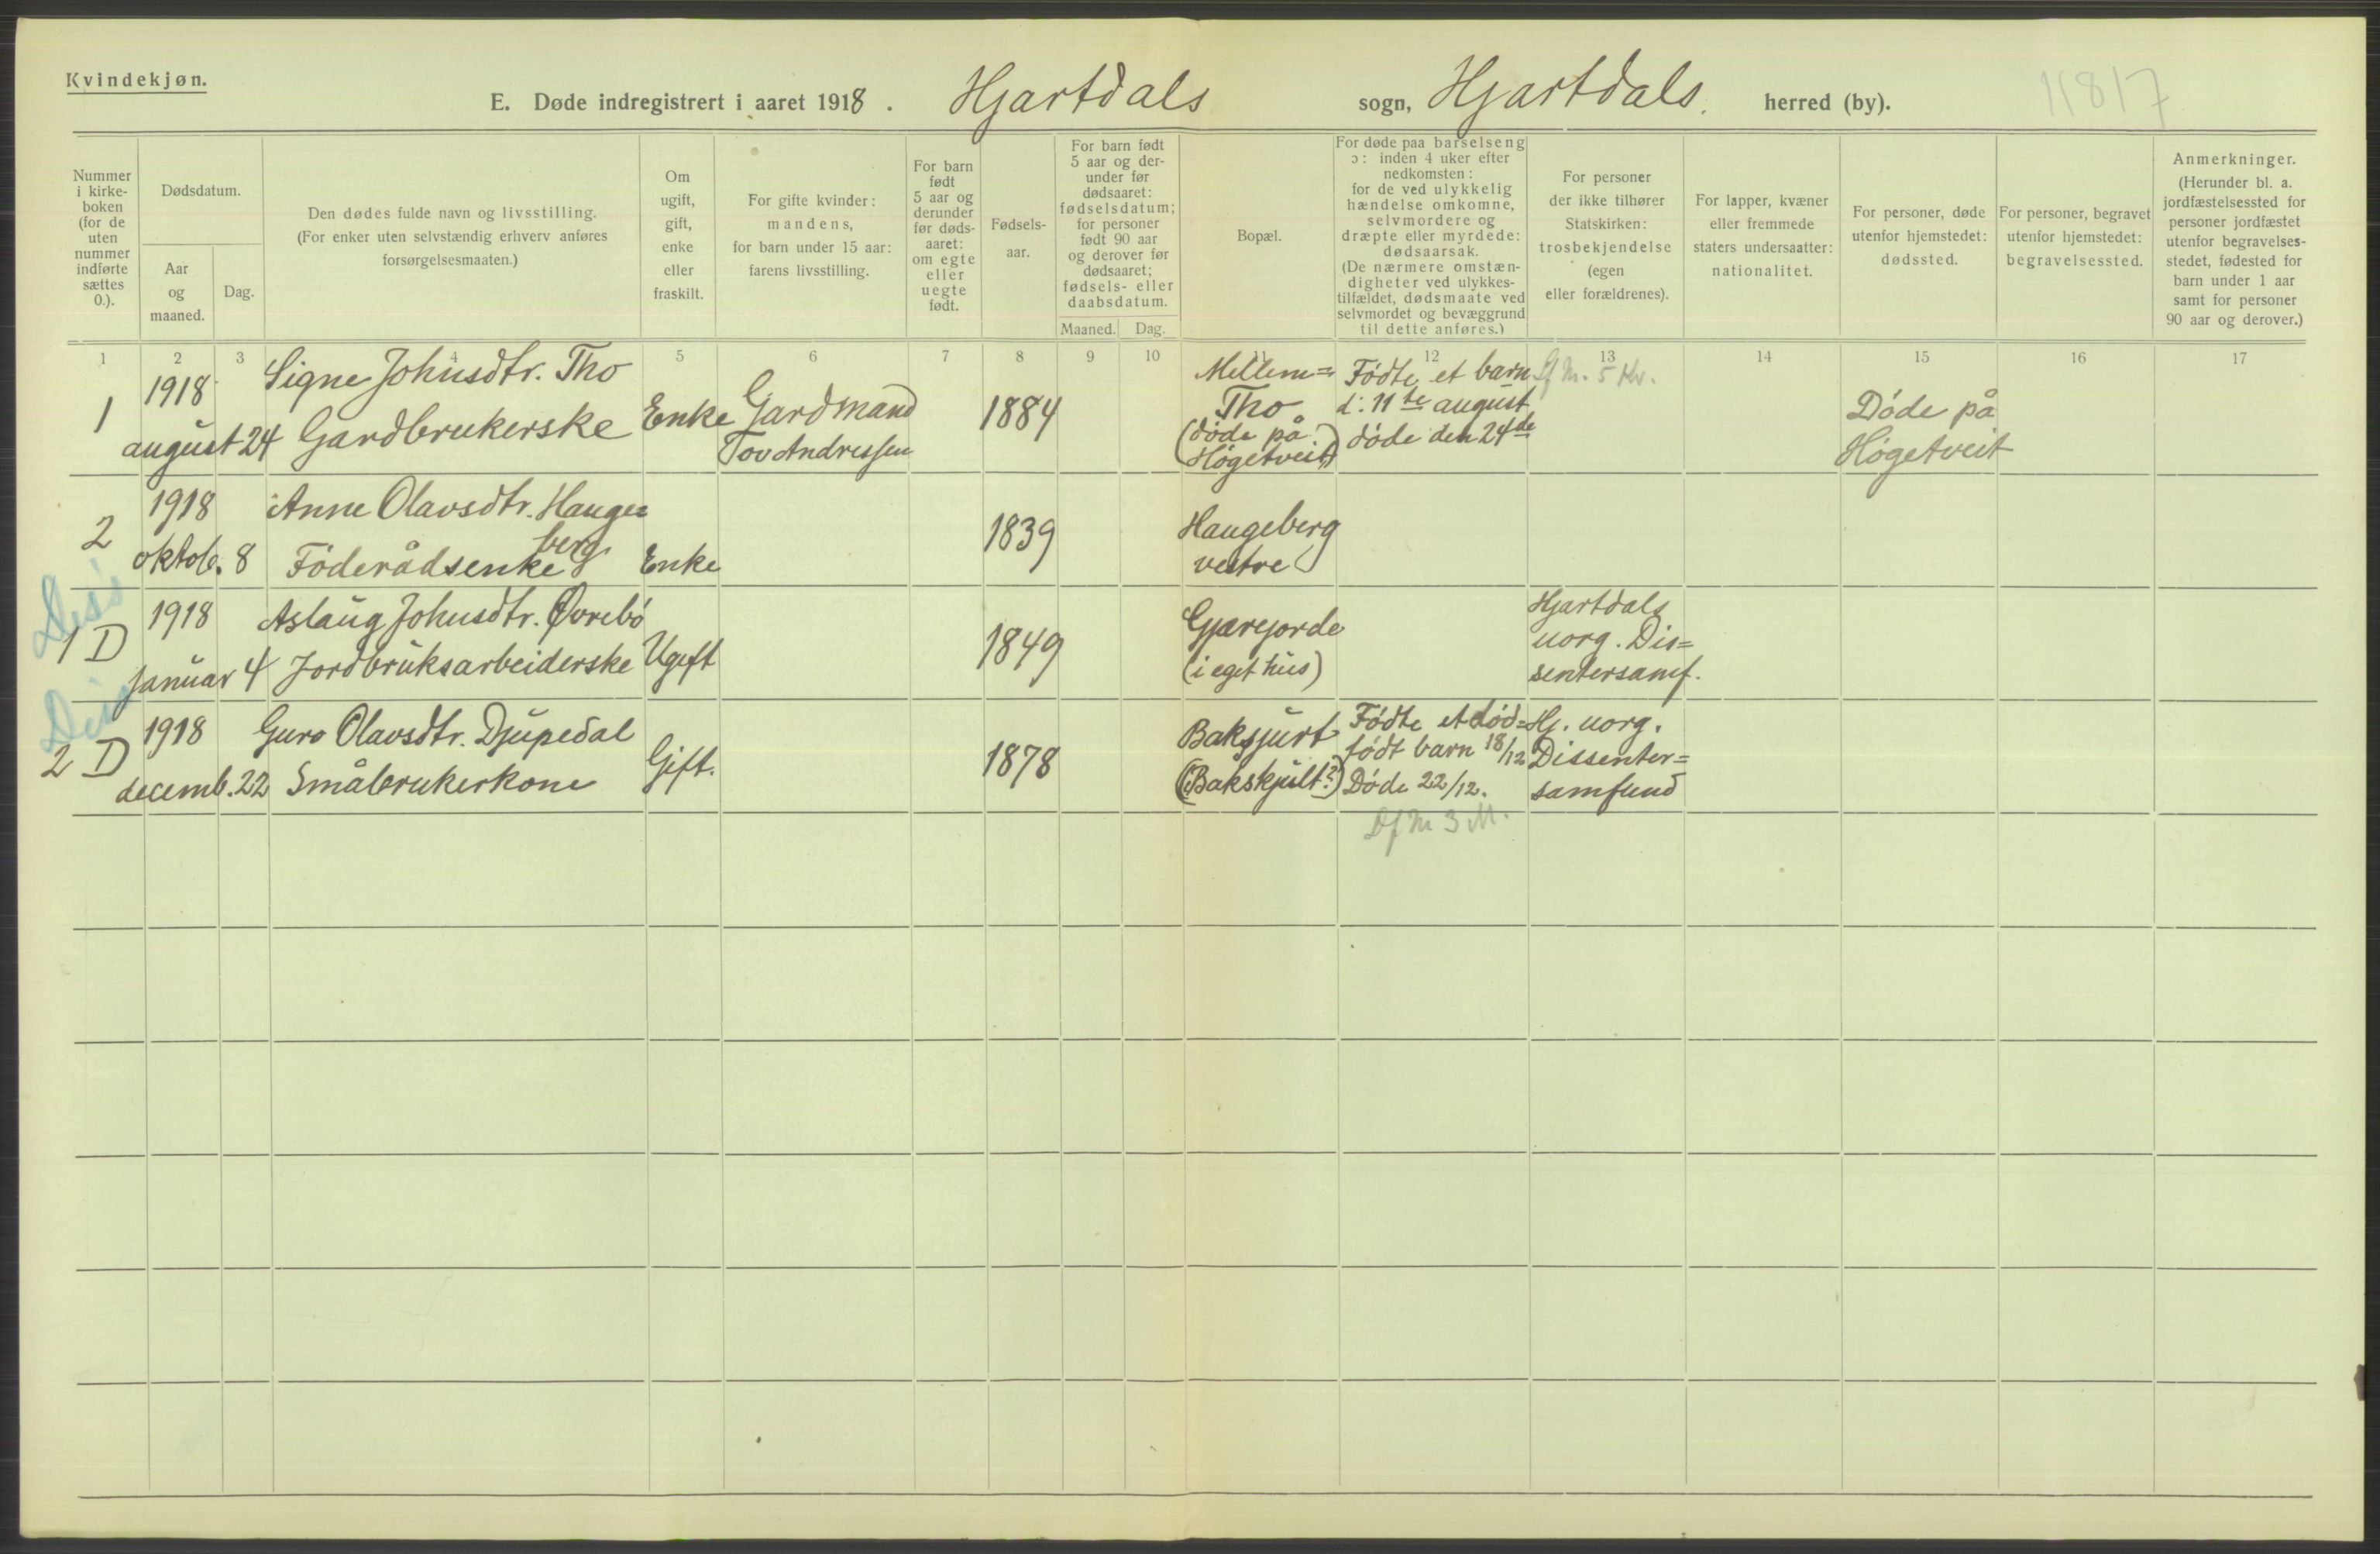 Kvindekjøn.
E. Døde indregistrert i aaret 1918. Hjartdals sogn, Hjartdals herred (by).
11817
Nummer
i kirke-
boken
(for de
uten
nummer
indførte
sættes
0.).
Dødsdatum.
Aar
og
maaned.
Dag.
Den dødes fulde navn og livsstilling.
(For enker uten selvstændig erhverv anføres
forsørgelsesmaaten.)
Om
ugift,
gift,
enke
eller
fraskilt.
For gifte kvinder:
mandens,
for barn under 15 aar:
farens livsstilling.
For barn
født
5 aar og
derunder
før døds-
aaret:
om egte
eller
uegte
født.
Fødsels-
aar.
For barn født
5 aar og der-
under før
dødsaaret:
fødselsdatum;
for personer
født 90 aar
og derover før
dødsaaret;
fødsels- eller
daabsdatum.
Maaned. Dag.
Bopæl.
For døde paa barselseng
ɔ: inden 4 uker efter
nedkomsten:
for de ved ulykkelig
hændelse omkomne,
selvmordere og
dræpte eller myrdede:
dødsaarsak.
(De nærmere omstæn-
digheter ved ulykkes-
tilfældet, dødsmaate ved
selvmordet og bevæggrund
til dette anføres.)
For personer
der ikke tilhører
Statskirken:
trosbekjendelse
(egen
eller forældrenes).
For lapper, kvæner
eller fremmede
staters undersaatter:
nationalitet.
For personer, døde
utenfor hjemstedet:
dødssted.
For personer, begravet
utenfor hjemstedet:
begravelsessted.
Anmerkninger.
(Herunder bl. a.
jordfæstelsessted for
personer jordfæstet
utenfor begravelses-
stedet, fødested for
barn under 1 aar
samt for personer
90 aar og derover.)
1 2 3 4 5 6 7 8 9 10 11 12 13 14 15 16 17
1
1918
august 24
Signe Johnsdtr. Tho
Gardbrukerske
Enke
Gardmand
Tov Andressen
1884
Mellem=
Tho
(døde på
Høgetveit)
Fødte et barn
d: 11te august
døde den 24de
M. 5 Kv.
Døde på
Høgetveit
2
1918
oktob. 8
Anne Olavsdtr. Hauge=
berg
Føderådsenke
Enke
1839
Haugeberg
vestre
Diss
1 D
1918
januar 4
Aslaug Johnsdtr. Øvrebø
Jordbruksarbeiderske
Ugift
1849
Gjærejorde
(i eget hus)
Hjartdals
uorg. Dis=
sentersamf.
Dis
2 D
1918
decemb. 22
Guro Olavsdtr. Djupedal
Småbrukerkone
Gift.
1878
Baksjurt
(Bakskjult?)
Fødte et død=
født barn 18/12
Døde 22/12.
Df M 3 M.
Hj. uorg.
Dissenter=
samfund